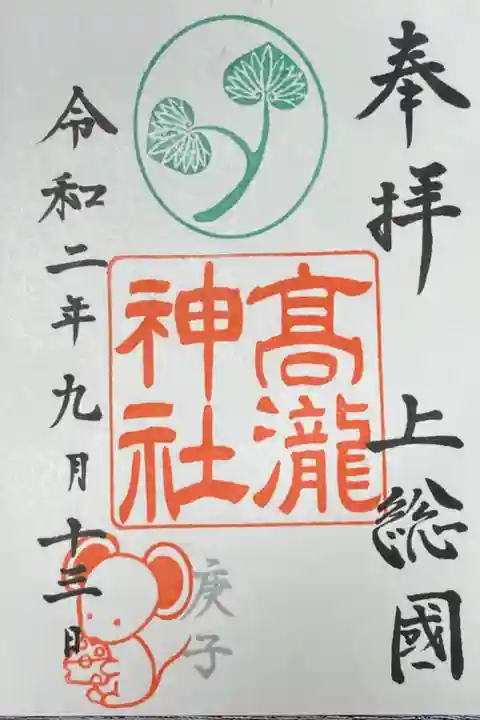 奉拝
上総國
髙瀧
神社
庚子
令和二年九月十三日